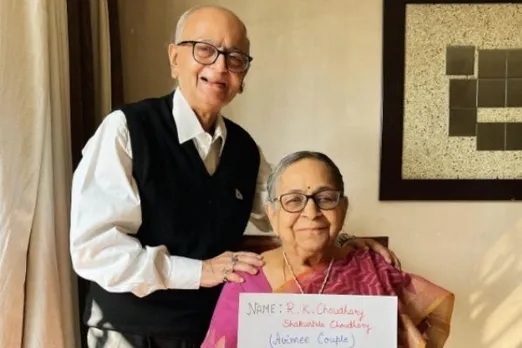 NAME: R. K. Choudhary
Shakuntala Choudhary
(Avimee Couple)